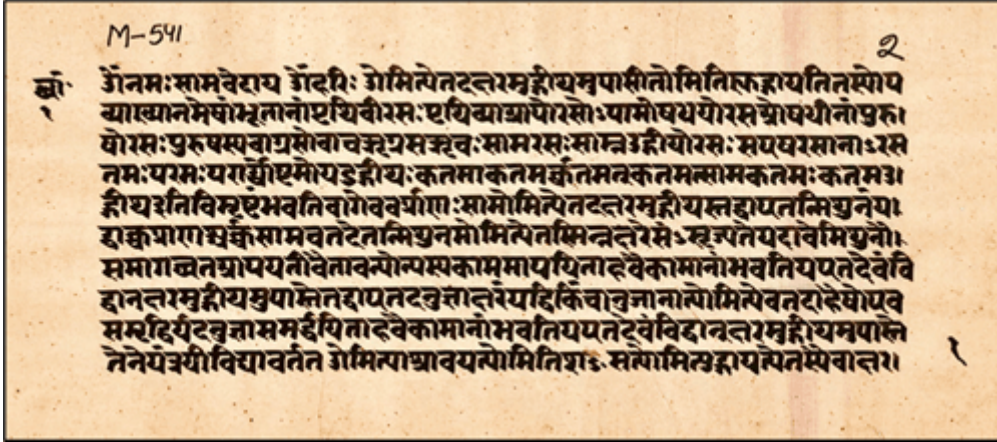 M-541
२
छां॰
१
ॐनमःसामवेदाय ॐहरिः ओमित्येतदक्षरमुद्गीथमुपासीतोमितिह्युद्गायतितस्योप
व्याख्यानमेषांभूतानांपृथिवीरसः पृथिव्याआपोरसोऽपामोषधयोरसओषधीनांपुरु।
षोरसःपुरुषस्यवाग्रसोवाचऋग्रसऋचःसामरसःसाम्नउद्गीथोरसः सएषरसानाꣳरस
तमःपरमःपरार्ध्योष्टमोयउद्गीथःकतमाकतमर्क्कतमत्कतमत्सामकतमःकतमउ।
द्गीथइतिविमृष्टंभवतिवागेवर्क्प्राणःसामोमित्येतदक्षरमुद्गीथस्तद्वाएतन्मिथुनंय।
द्वाक्चप्राणश्चर्क्चसामचतदेतन्मिथुनमोमित्येतस्मिन्नक्षरेसꣳसृज्यतेयदावैमिथुनौ।
समागच्छतआपयतोवैतावन्योन्यस्यकाममापयिताहवैकामानांभवतियएतदेवंवि
द्वानक्षरमुद्गीथमुपास्तेतद्वाएतदनुज्ञाक्षरंयद्धिकिंचानुजानात्योमित्येवतदाहैषोएव
समृद्धिर्यदनुज्ञासमर्द्धयिताहवैकामानांभवतियएतदेवंविद्वानक्षरमुद्गीथमुपास्ते
तेनेयंत्रयीविद्यावर्तत ओमित्याश्रावयत्योमितिशꣳसत्योमित्युद्गायत्येतस्यैवाक्षर।
१